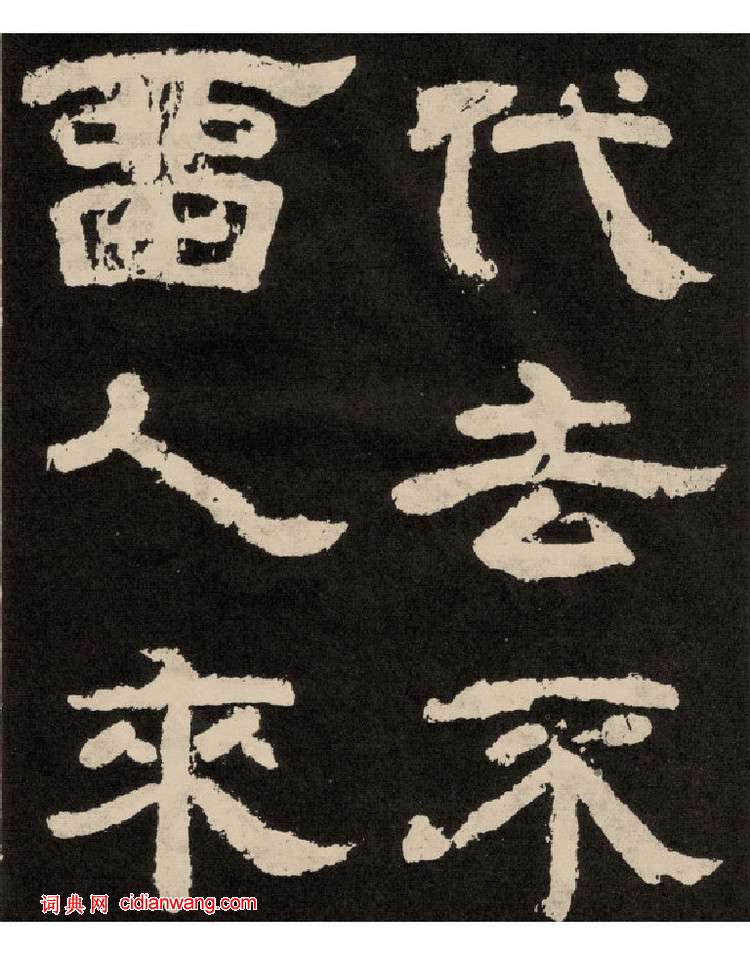 代去不
畱人來
词典网 cidianwang.com